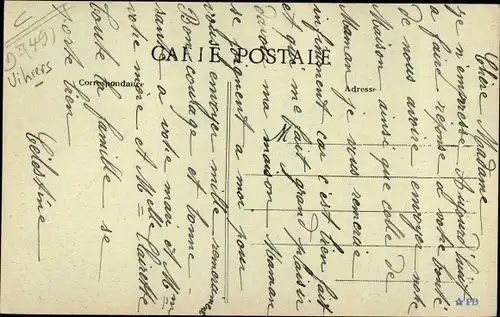 D.(49)
Vihiers
CARTE POSTALE
Correspondance
Adresse
Chère Madame
je m'empresse Aujourd'hui
a faire réponse à votre bonté
de nous avoire envoyer notre
Maison ainsi que celle de
Maman je vous remercie
infiniment car c'est bien fait
et qui me fait grand plaisir
d'avoir ma maison Maman
se joignent a moi pour
vous envoyer mille remerciements
Bon courage et bonne
santé a votre mari et Mme
votre mère et Melle Clairette
toute la famille se
porte bien
Célestine
M
PB